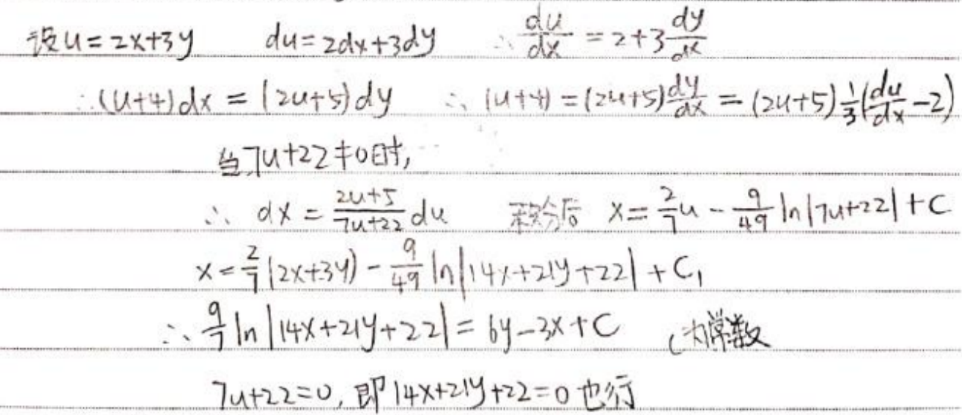 设u=2x+3y du=2dx+3dy ∴ du/dx = 2+3 dy/dx
∴(u+4)dx = (2u+5)dy ∴ (u+4)=(2u+5)dy/dx = (2u+5)1/3(du/dx-2)
当7u+22≠0时,
∴ dx = (2u+5)/(7u+22) du 积分后 x=2/7u - 9/49 ln|7u+22|+C
x=2/7(2x+3y) - 9/49 ln|14x+21y+22| + C₁
∴ 9/7 ln|14x+21y+22| = 6y-3x+C C为常数
7u+22=0, 即14x+21y+22=0也行